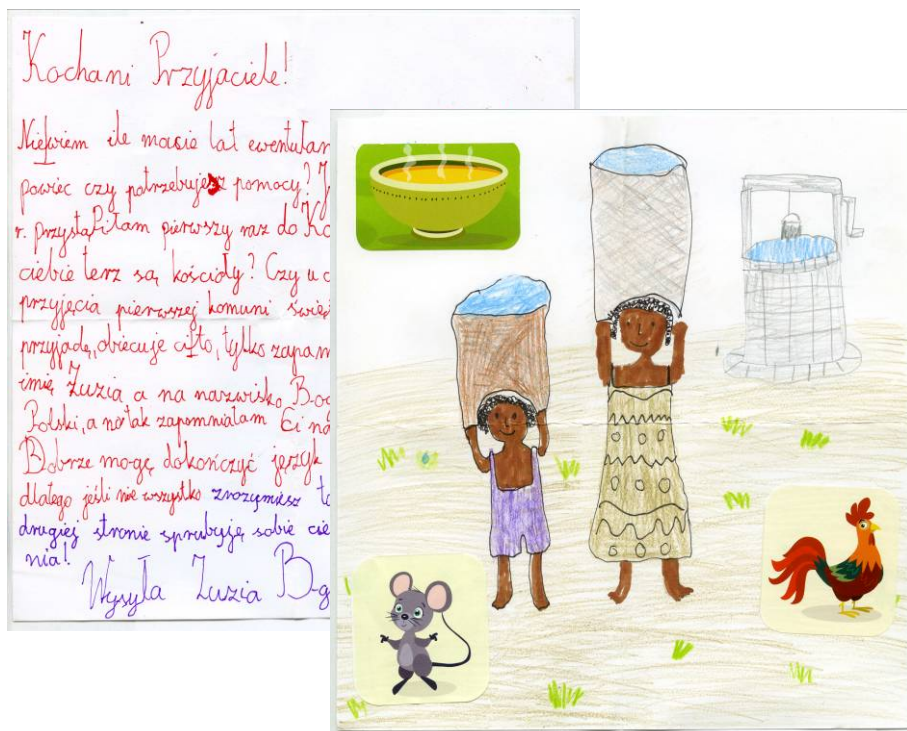 Kochani Przyjaciele!
Niewiem ile macie lat ewentułan
powiec czy potrzebujesz pomocy?
r. przystąPiłam pierwszy raz do Ko
ciebie terz są kościoły? Czy u c
przyjęcia pierwszej komuni świę
przyjadę, obiecuje ci to, tylko zapam
imię Zuzia a na nazwisko Bog
Polski, a no tak zapomniałam Ci na
Dobrze mogę dokończyć język
dlatego jeśli nie wszystko zrozumiesz to
drugiej stronie sprubuję sobie cie
nia!
Wysyła Zuzia Bog